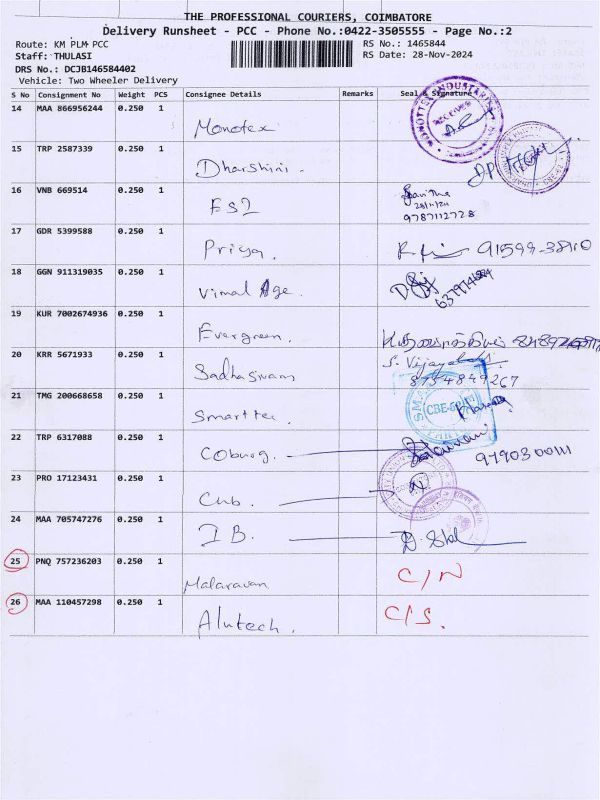 THE PROFESSIONAL COURIERS, COIMBATORE
Delivery Runsheet - PCC - Phone No.:0422-3505555 - Page No.:2
Route: KM PLM PCC
RS No.: 1465844
Staff: THULASI
RS Date: 28-Nov-2024
DRS No.: DCJB146584402
Vehicle: Two Wheeler Delivery
S No Consignment No Weight PCS Consignee Details Remarks Seal & Signature
14 MAA 866956244 0.250 1 Monotex RECEIVED
15 TRP 2587339 0.250 1 Dharshini.
16 VNB 669514 0.250 1 ESI
28/11/24
9787112728
17 GDR 5399588 0.250 1 Priya. 91599-38910
18 GGN 911319035 0.250 1 Vimal Age.
19 KUR 7002674936 0.250 1 Evergreen.
20 KRR 5671933 0.250 1 Sadhasivam S. Vijayalakshmi
8754849267
21 TMG 200668658 0.250 1 Smarttec.
22 TRP 6317088 0.250 1 Coburg. 9790300111
23 PRO 17123431 0.250 1 Cub.
24 MAA 705747276 0.250 1 IB.
25 PNQ 757236203 0.250 1 Malaravan C/N
26 MAA 110457298 0.250 1 Alutech. C/S.